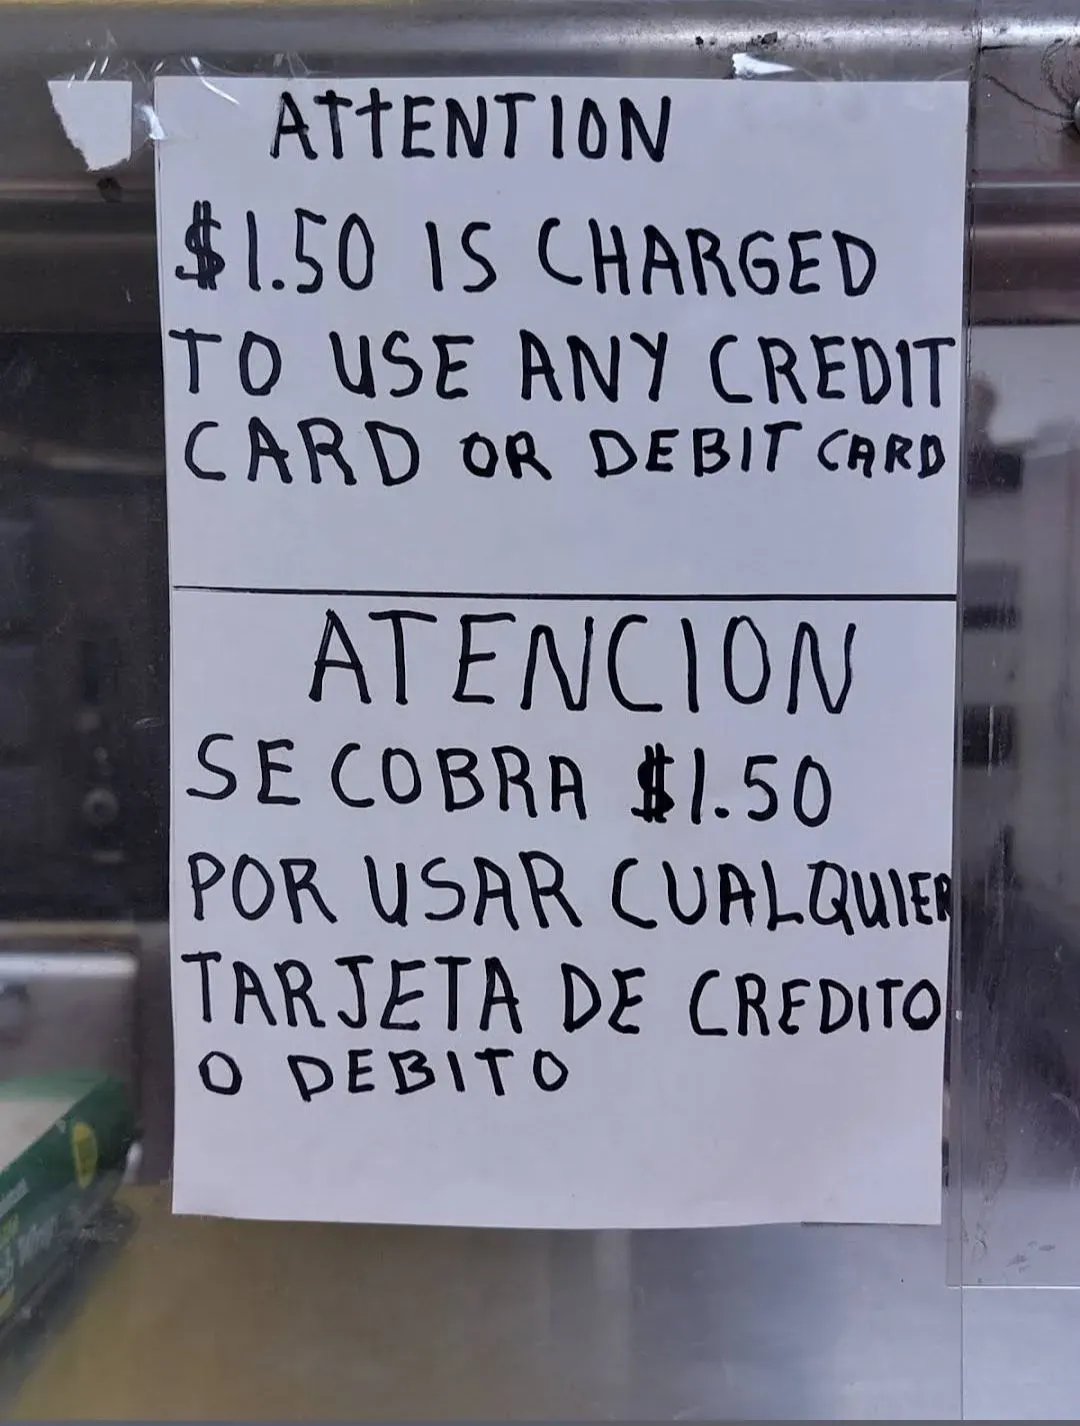 ATTENTION
$1.50 IS CHARGED
TO USE ANY CREDIT
CARD OR DEBIT CARD
ATENCION
SE COBRA $1.50
POR USAR CUALQUIER
TARJETA DE CREDITO
O DEBITO